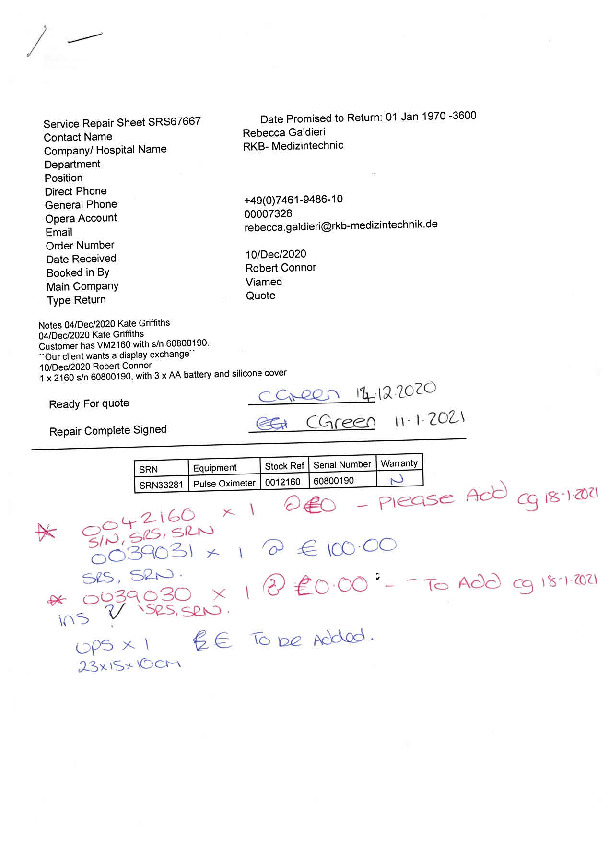 Service Repair Sheet SRS67667 Date Promised to Return: 01 Jan 1970 -3600
Contact Name Rebecca Galdieri
Company/ Hospital Name RKB- Medizintechnic
Department
Position
Direct Phone
General Phone +49(0)7461-9486-10
Opera Account 00007328
Email rebecca.galdieri@rkb-medizintechnik.de
Order Number
Date Received 10/Dec/2020
Booked in By Robert Connor
Main Company Viamed
Type Return Quote
Notes 04/Dec/2020 Kate Griffiths
04/Dec/2020 Kate Griffiths
Customer has VM2160 with s/n 60800190.
``Our client wants a display exchange``
10/Dec/2020 Robert Connor
1 x 2160 s/n 60800190, with 3 x AA battery and silicone cover
Ready For quote CGreen 14.12.2020
Repair Complete Signed CGreen 11-1-2021
SRN Equipment Stock Ref Serial Number Warranty
SRN33281 Pulse Oximeter 0012160 60800190 N
* 0042160 x 1 @ £0 - Please Add cg 18-1-2021
S/N, SRS, SRN
0039031 x 1 @ € 100.00
SRS, SRN.
* 0039030 x 1 @ £0.00 - - To Add cg 18-1-2021
ins SRS, SRN.
UPS x 1 € To be Added.
23x15x10cm